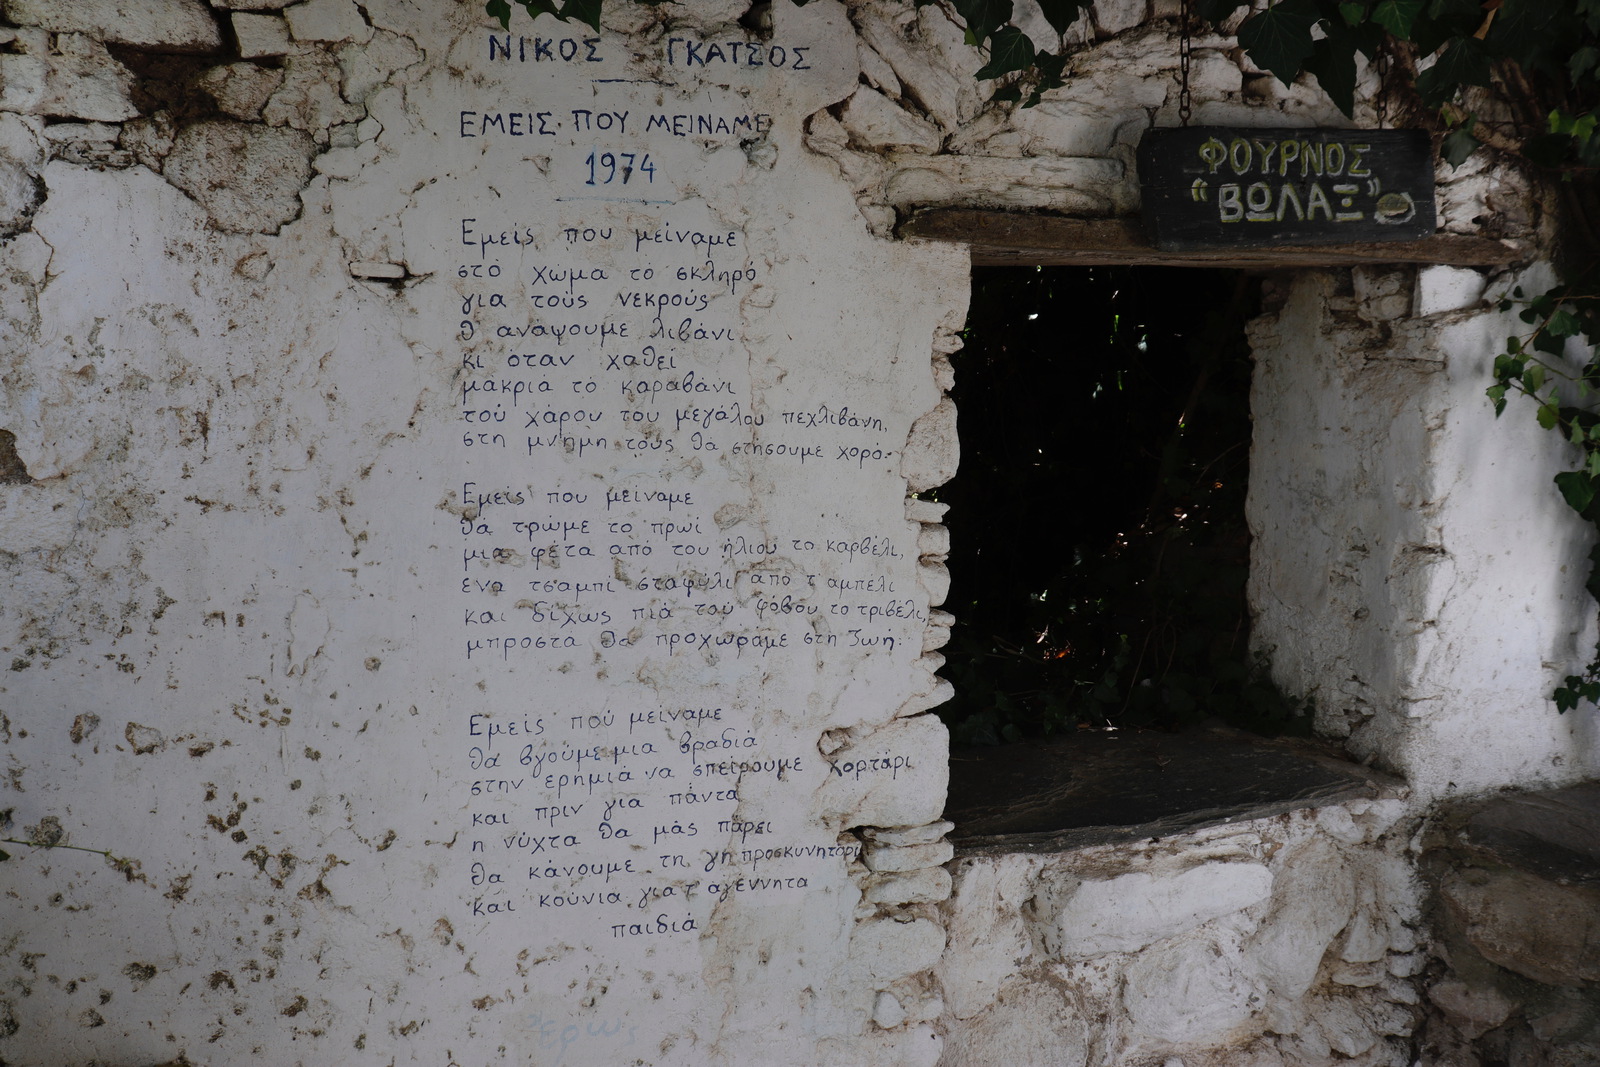 ΝΙΚΟΣ ΓΚΑΤΣΟΣ
ΕΜΕΙΣ ΠΟΥ ΜΕΙΝΑΜΕ
1974
Εμείς που μείναμε
στό χώμα τό σκληρό
για τούς νεκρούς
θ' ανάψουμε λιβάνι
κι όταν χαθεί
μακριά τό καραβάνι
τού χάρου του μεγάλου πεχλιβάνη,
στη μνήμη τούς θά στήσουμε χορό.
Εμείς που μείναμε
θά τρώμε το πρωί
μια φέτα από του ήλιου το καρβέλι,
ένα τσαμπί σταφύλι από τ' αμπέλι
και δίχως πιά τού φόβου το τριβέλι,
μπροστά θα προχωράμε στη ζωή.
Εμείς πού μείναμε
θά βγούμε μια βραδιά
στην ερημιά να σπείρουμε χορτάρι
και πριν για πάντα
η νύχτα θα μάς πάρει
θα κάνουμε τη γή προσκυνητάρι
και κούνια για τ' αγέννητα
παιδιά
Έρως
ΦΟΥΡΝΟΣ
"ΒΩΛΑΞ"